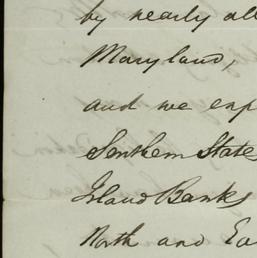 by nearly all
Maryland,
and we exp
Southern State
Island Banks
North and Ea